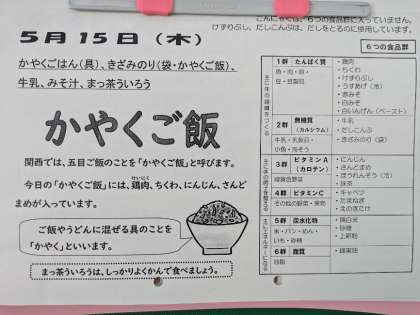 こんにゃくは、6つの食品群に入っていません。
けずりぶし、だしこんぶは、だしをとるのに使用しています。
5月15日(木)
6つの食品群
かやくごはん(具)、きざみのり(袋・かやくご飯)、
牛乳、みそ汁、まっ茶ういろう
かやくご飯
関西では、五目ご飯のことを「かやくご飯」と呼びます。
けいにく
今日の「かやくご飯」には、鶏肉、ちくわ、にんじん、さんど
まめが入っています。
ご飯やうどんに混ぜる具のことを
「かやく」といいます。
まっ茶ういろうは、しっかりよくかんで食べましょう。
1群 たんぱく質
魚・肉・卵・
豆・豆製品
・鶏肉
・ちくわ
・けずりぶし
・うすあげ(冷)
・赤みそ
・白みそ
・白いんげん(ペースト)
2群 無機質
(カルシウム)
牛乳・乳製品・
小魚・海そう
・牛乳
・だしこんぶ
・きざみのり(袋)
3群 ビタミンA
(カロテン)
緑黄色野菜
・にんじん
・さんどまめ
・ほうれんそう(冷)
・抹茶
4群 ビタミンC
その他の野菜・果物
・キャベツ
・たまねぎ
・えのきたけ
5群 炭水化物
米・パン・めん・
いも・砂糖
・精白米
・砂糖
・上新粉
6群 脂質
油脂
・綿実油